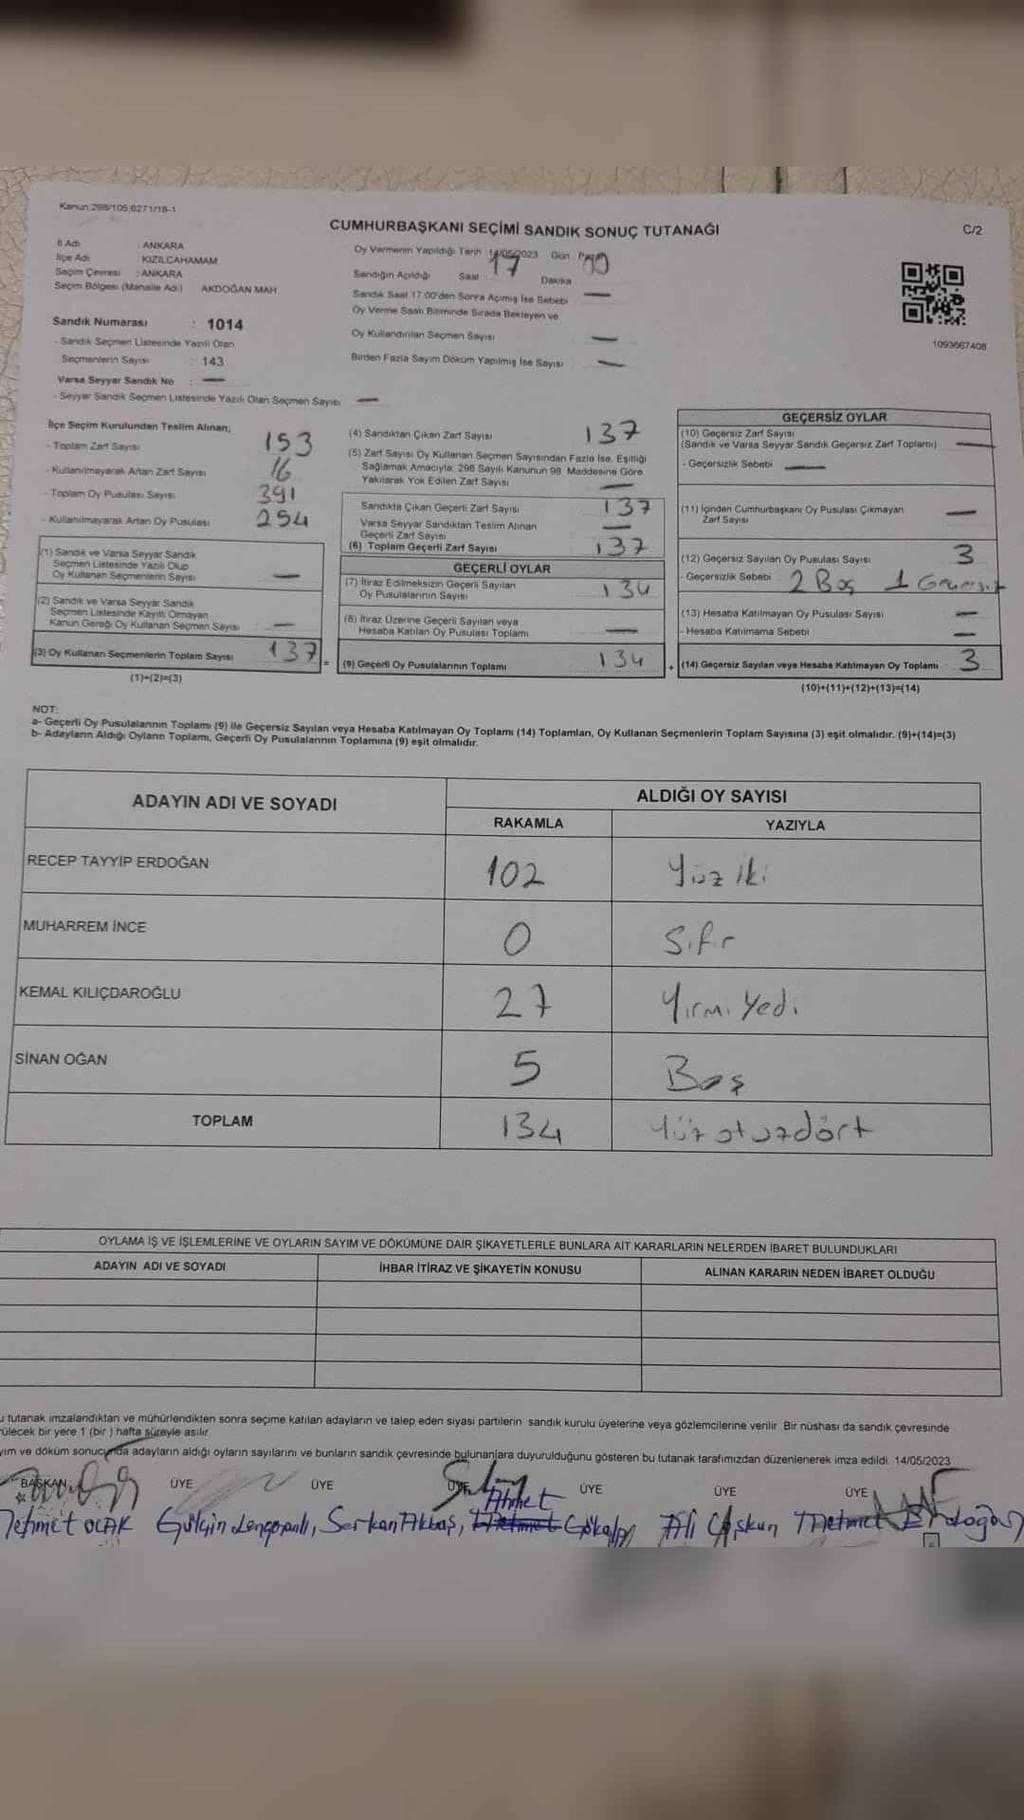 Kanun:298/105;6271/18-1
CUMHURBAŞKANI SEÇİMİ SANDIK SONUÇ TUTANAĞI
C/2
İl Adı ANKARA
İlçe Adı KIZILCAHAMAM
Seçim Çevresi : ANKARA
Seçim Bölgesi (Mahalle Adı) AKDOĞAN MAH.
Sandık Numarası : 1014
- Sandık Seçmen Listesinde Yazılı Olan
Seçmenlerin Sayısı : 143
Varsa Seyyar Sandık No : —
- Seyyar Sandık Seçmen Listesinde Yazılı Olan Seçmen Sayısı —
Oy Vermenin Yapıldığı Tarih 14/05/2023 Gün Pazar
Sandığın Açıldığı Saat 17 Dakika 00
Sandık Saat 17.00'den Sonra Açımış İse Sebebi —
Oy Verme Saati Bitiminde Sırada Bekleyen ve
Oy Kullandırılan Seçmen Sayısı —
Birden Fazla Sayım Döküm Yapılmış İse Sayısı —
1093667408
İlçe Seçim Kurulundan Teslim Alınan;
- Toplam Zarf Sayısı 153
- Kullanılmayarak Artan Zarf Sayısı 16
- Toplam Oy Pusulası Sayısı 391
- Kullanılmayarak Artan Oy Pusulası 254
(1) Sandık ve Varsa Seyyar Sandık
Seçmen Listesinde Yazılı Olup
Oy Kullanan Seçmenlerin Sayısı —
(2) Sandık ve Varsa Seyyar Sandık
Seçmen Listesinde Kayıtlı Olmayan
Kanun Gereği Oy Kullanan Seçmen Sayısı —
(3) Oy Kullanan Seçmenlerin Toplam Sayısı 137 =
(1)+(2)=(3)
(4) Sandıktan Çıkan Zarf Sayısı 137
(5) Zarf Sayısı Oy Kullanan Seçmen Sayısından Fazla İse, Eşitliği
Sağlamak Amacıyla, 298 Sayılı Kanunun 98. Maddesine Göre
Yakılarak Yok Edilen Zarf Sayısı —
Sandıkta Çıkan Geçerli Zarf Sayısı 137
Varsa Seyyar Sandıktan Teslim Alınan
Geçerli Zarf Sayısı —
(6) Toplam Geçerli Zarf Sayısı 137
GEÇERLİ OYLAR
(7) İtiraz Edilmeksizin Geçerli Sayılan
Oy Pusulalarının Sayısı 134
(8) İtiraz Üzerine Geçerli Sayılan veya
Hesaba Katılan Oy Pusulası Toplamı —
(9) Geçerli Oy Pusulalarının Toplamı 134 +
GEÇERSİZ OYLAR
(10) Geçersiz Zarf Sayısı
(Sandık ve Varsa Seyyar Sandık Geçersiz Zarf Toplamı) —
- Geçersizlik Sebebi —
(11) İçinden Cumhurbaşkanı Oy Pusulası Çıkmayan
Zarf Sayısı —
(12) Geçersiz Sayılan Oy Pusulası Sayısı 3
- Geçersizlik Sebebi 2 Boş 1 Geçersiz
(13) Hesaba Katılmayan Oy Pusulası Sayısı —
- Hesaba Katılmama Sebebi —
(14) Geçersiz Sayılan veya Hesaba Katılmayan Oy Toplamı 3
(10)+(11)+(12)+(13)=(14)
NOT:
a- Geçerli Oy Pusulalarının Toplamı (9) ile Geçersiz Sayılan veya Hesaba Katılmayan Oy Toplamı (14) Toplamları, Oy Kullanan Seçmenlerin Toplam Sayısına (3) eşit olmalıdır. (9)+(14)=(3)
b- Adayların Aldığı Oyların Toplamı, Geçerli Oy Pusulalarının Toplamına (9) eşit olmalıdır.
ADAYIN ADI VE SOYADI
ALDIĞI OY SAYISI
RAKAMLA YAZIYLA
RECEP TAYYİP ERDOĞAN 102 Yüz iki
MUHARREM İNCE 0 Sıfır
KEMAL KILIÇDAROĞLU 27 Yirmi Yedi
SİNAN OĞAN 5 Beş
TOPLAM 134 Yüz otuzdört
OYLAMA İŞ VE İŞLEMLERİNE VE OYLARIN SAYIM VE DÖKÜMÜNE DAİR ŞİKAYETLERLE BUNLARA AİT KARARLARIN NELERDEN İBARET BULUNDUKLARI
ADAYIN ADI VE SOYADI İHBAR İTİRAZ VE ŞİKAYETİN KONUSU ALINAN KARARIN NEDEN İBARET OLDUĞU
u tutanak imzalandıktan ve mühürlendikten sonra seçime katılan adayların ve talep eden siyasi partilerin sandık kurulu üyelerine veya gözlemcilerine verilir. Bir nüshası da sandık çevresinde
ülecek bir yere 1 (bir ) hafta süreyle asılır.
yım ve döküm sonucunda adayların aldığı oyların sayılarını ve bunların sandık çevresinde bulunanlara duyurulduğunu gösteren bu tutanak tarafımızdan düzenlenerek imza edildi. 14/05/2023
BAŞKAN ÜYE ÜYE ÜYE ÜYE ÜYE ÜYE
Ahmet
Mehmet OCAK Gülçin Serkan Akbaş, Mehmet Gökalp Ali Coşkun Mehmet Erdoğan